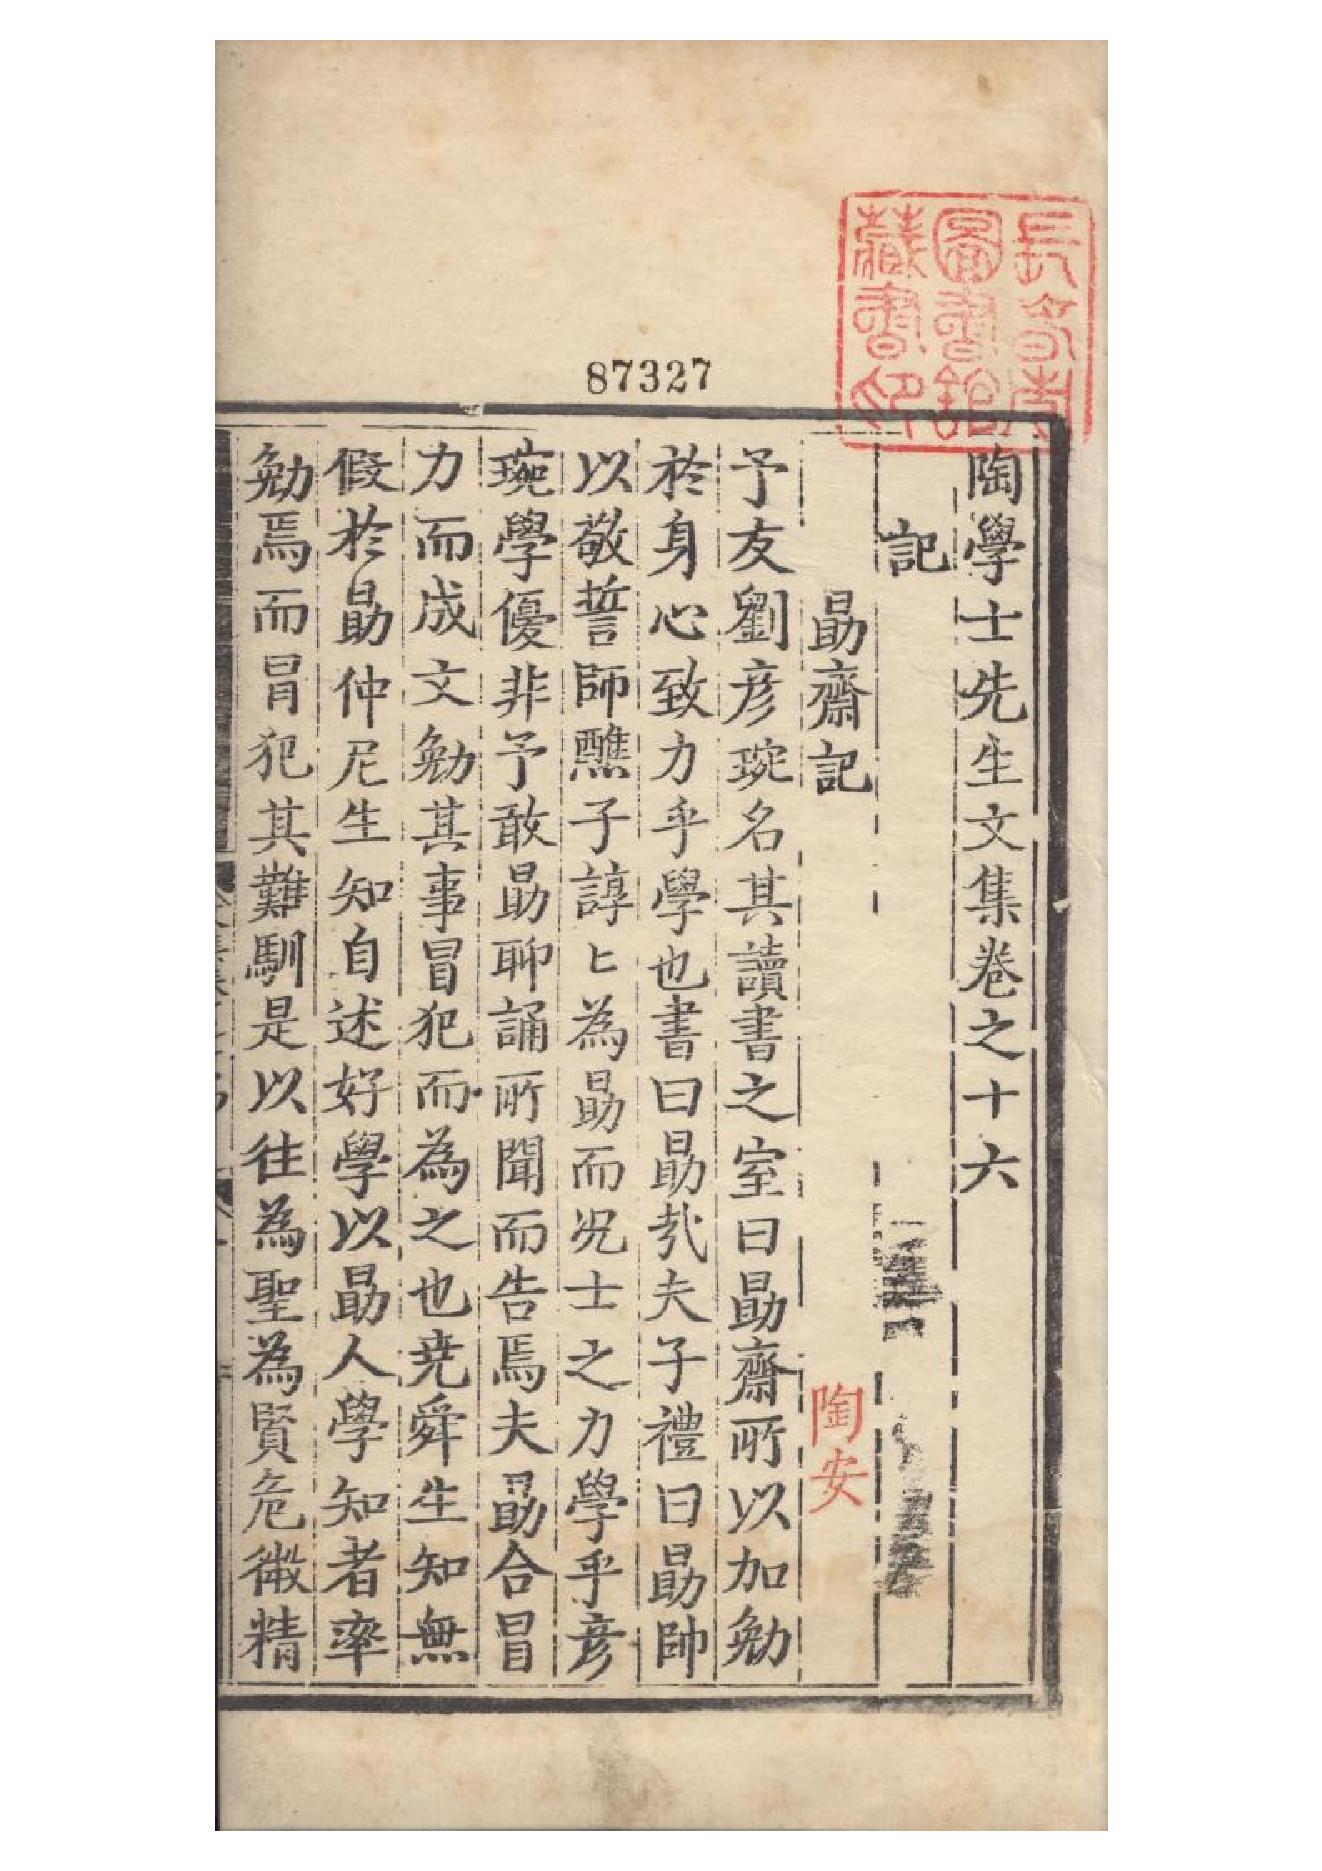 87327
長春市
圖書館
藏書印
陶學士先生文集卷之十六
記
勗齋記
陶安
予友劉彦琬名其讀書之室曰勗齋所以加勉
於身心致力乎學也書曰勗哉夫子禮曰勗帥
以敬誓師醮子諄〻為勗而况士之力學乎彦
琬學優非予敢勗聊誦所聞而告焉夫勗合冒
力而成文勉其事冒犯而為之也尭舜生知無
假於勗仲尼生知自述好學以勗人學知者率
勉焉而冒犯其難馴是以徃為聖為賢危微精